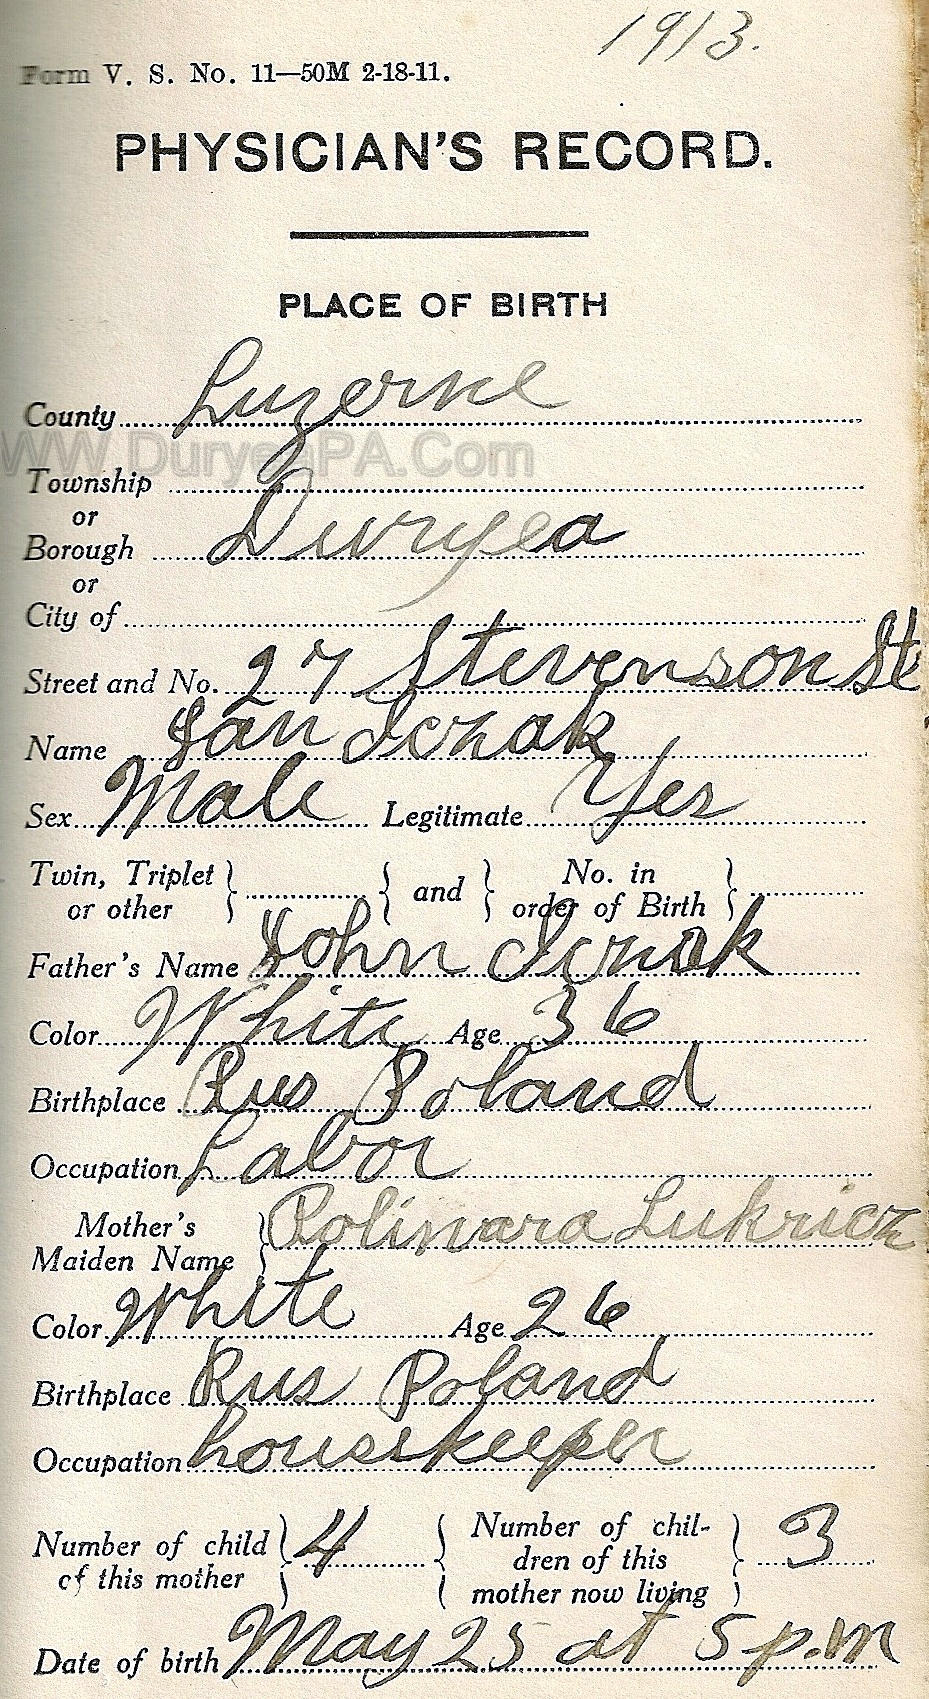 1913.
Form V. S. No. 11—50M 2-18-11.
PHYSICIAN'S RECORD.
PLACE OF BIRTH
County Luzerne
WWW.DuryeaPA.Com
Township
or
Borough Duryea
or
City of
Street and No. 27 Stevenson St
Name Jan
Sex Male Legitimate Yes
Twin, Triplet or other } { and } No. in order of Birth }
Father's Name John
Color White Age 36
Birthplace Rus Poland
Occupation Labor
Mother's Maiden Name } Polinara Lukricz
Color White Age 26
Birthplace Rus Poland
Occupation housekeeper
Number of child of this mother } 4 { Number of children of this mother now living } 3
Date of birth May 25 at 5 p.m